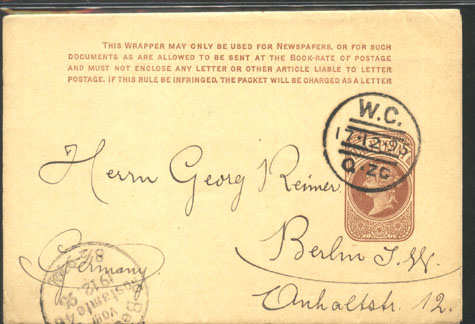 THIS WRAPPER MAY ONLY BE USED FOR NEWSPAPERS, OR FOR SUCH
DOCUMENTS AS ARE ALLOWED TO BE SENT AT THE BOOK-RATE OF POSTAGE
AND MUST NOT ENCLOSE ANY LETTER OR OTHER ARTICLE LIABLE TO LETTER
POSTAGE. IF THIS RULE BE INFRINGED, THE PACKET WILL BE CHARGED AS A LETTER
W.C.
17·12·95
Herrn Georg Reimer
Berlin S.W.
Germany
Anhaltstr. 12.